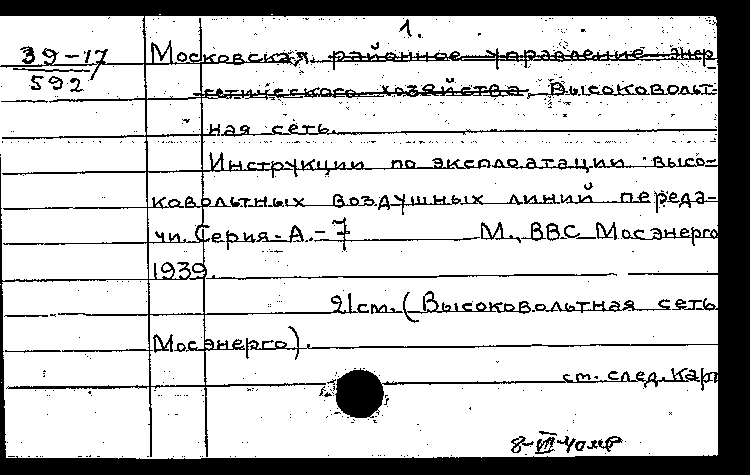 1.
39-17
592
Московская районное управление энер
гетического хозяйства, Высоковольт-
ная сеть.
Инструкции по эксплоатации высо-
ковольтных воздушных линий переда-
чи. Серия-А.-7 М., ВВС Мосэнерго
1939.
21см. (Высоковольтная сеть
Мосэнерго).
см. след. карт
8-VII-40